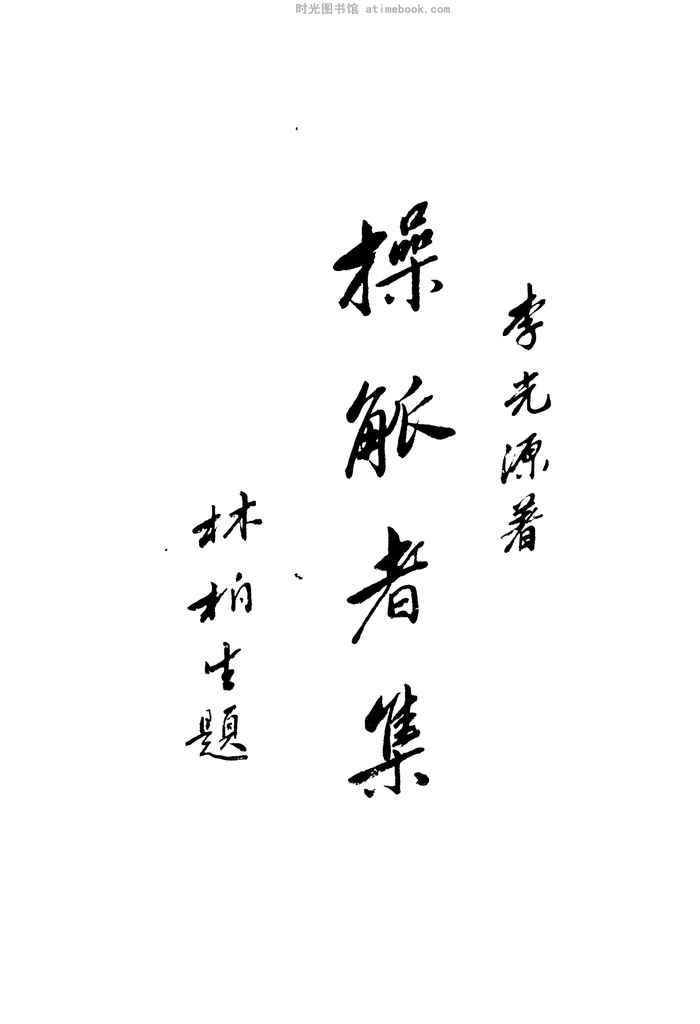 时光图书馆 atimebook.com
李光源著
操觚者集
林柏生題